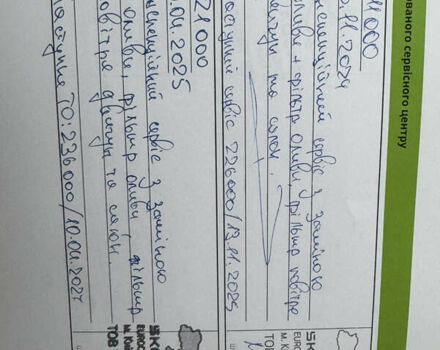 ованого сервісного центру
11000
.11.2024
нспекційний сервіс з заміною
оливи + фільтр оливи, фільтр повітря
двигуна та салон.
аступний сервіс 226000/13.11.2025
SK
EURO
М. Ки
ТОВ
21000
.04.2025
нспекційний сервіс з заміною
оливи, фільтр оливи, фільтр
овітря двигуна та салон.
аступне ТО: 236000/10.04.2027
SK
EUROC
М. Киї
ТОВ